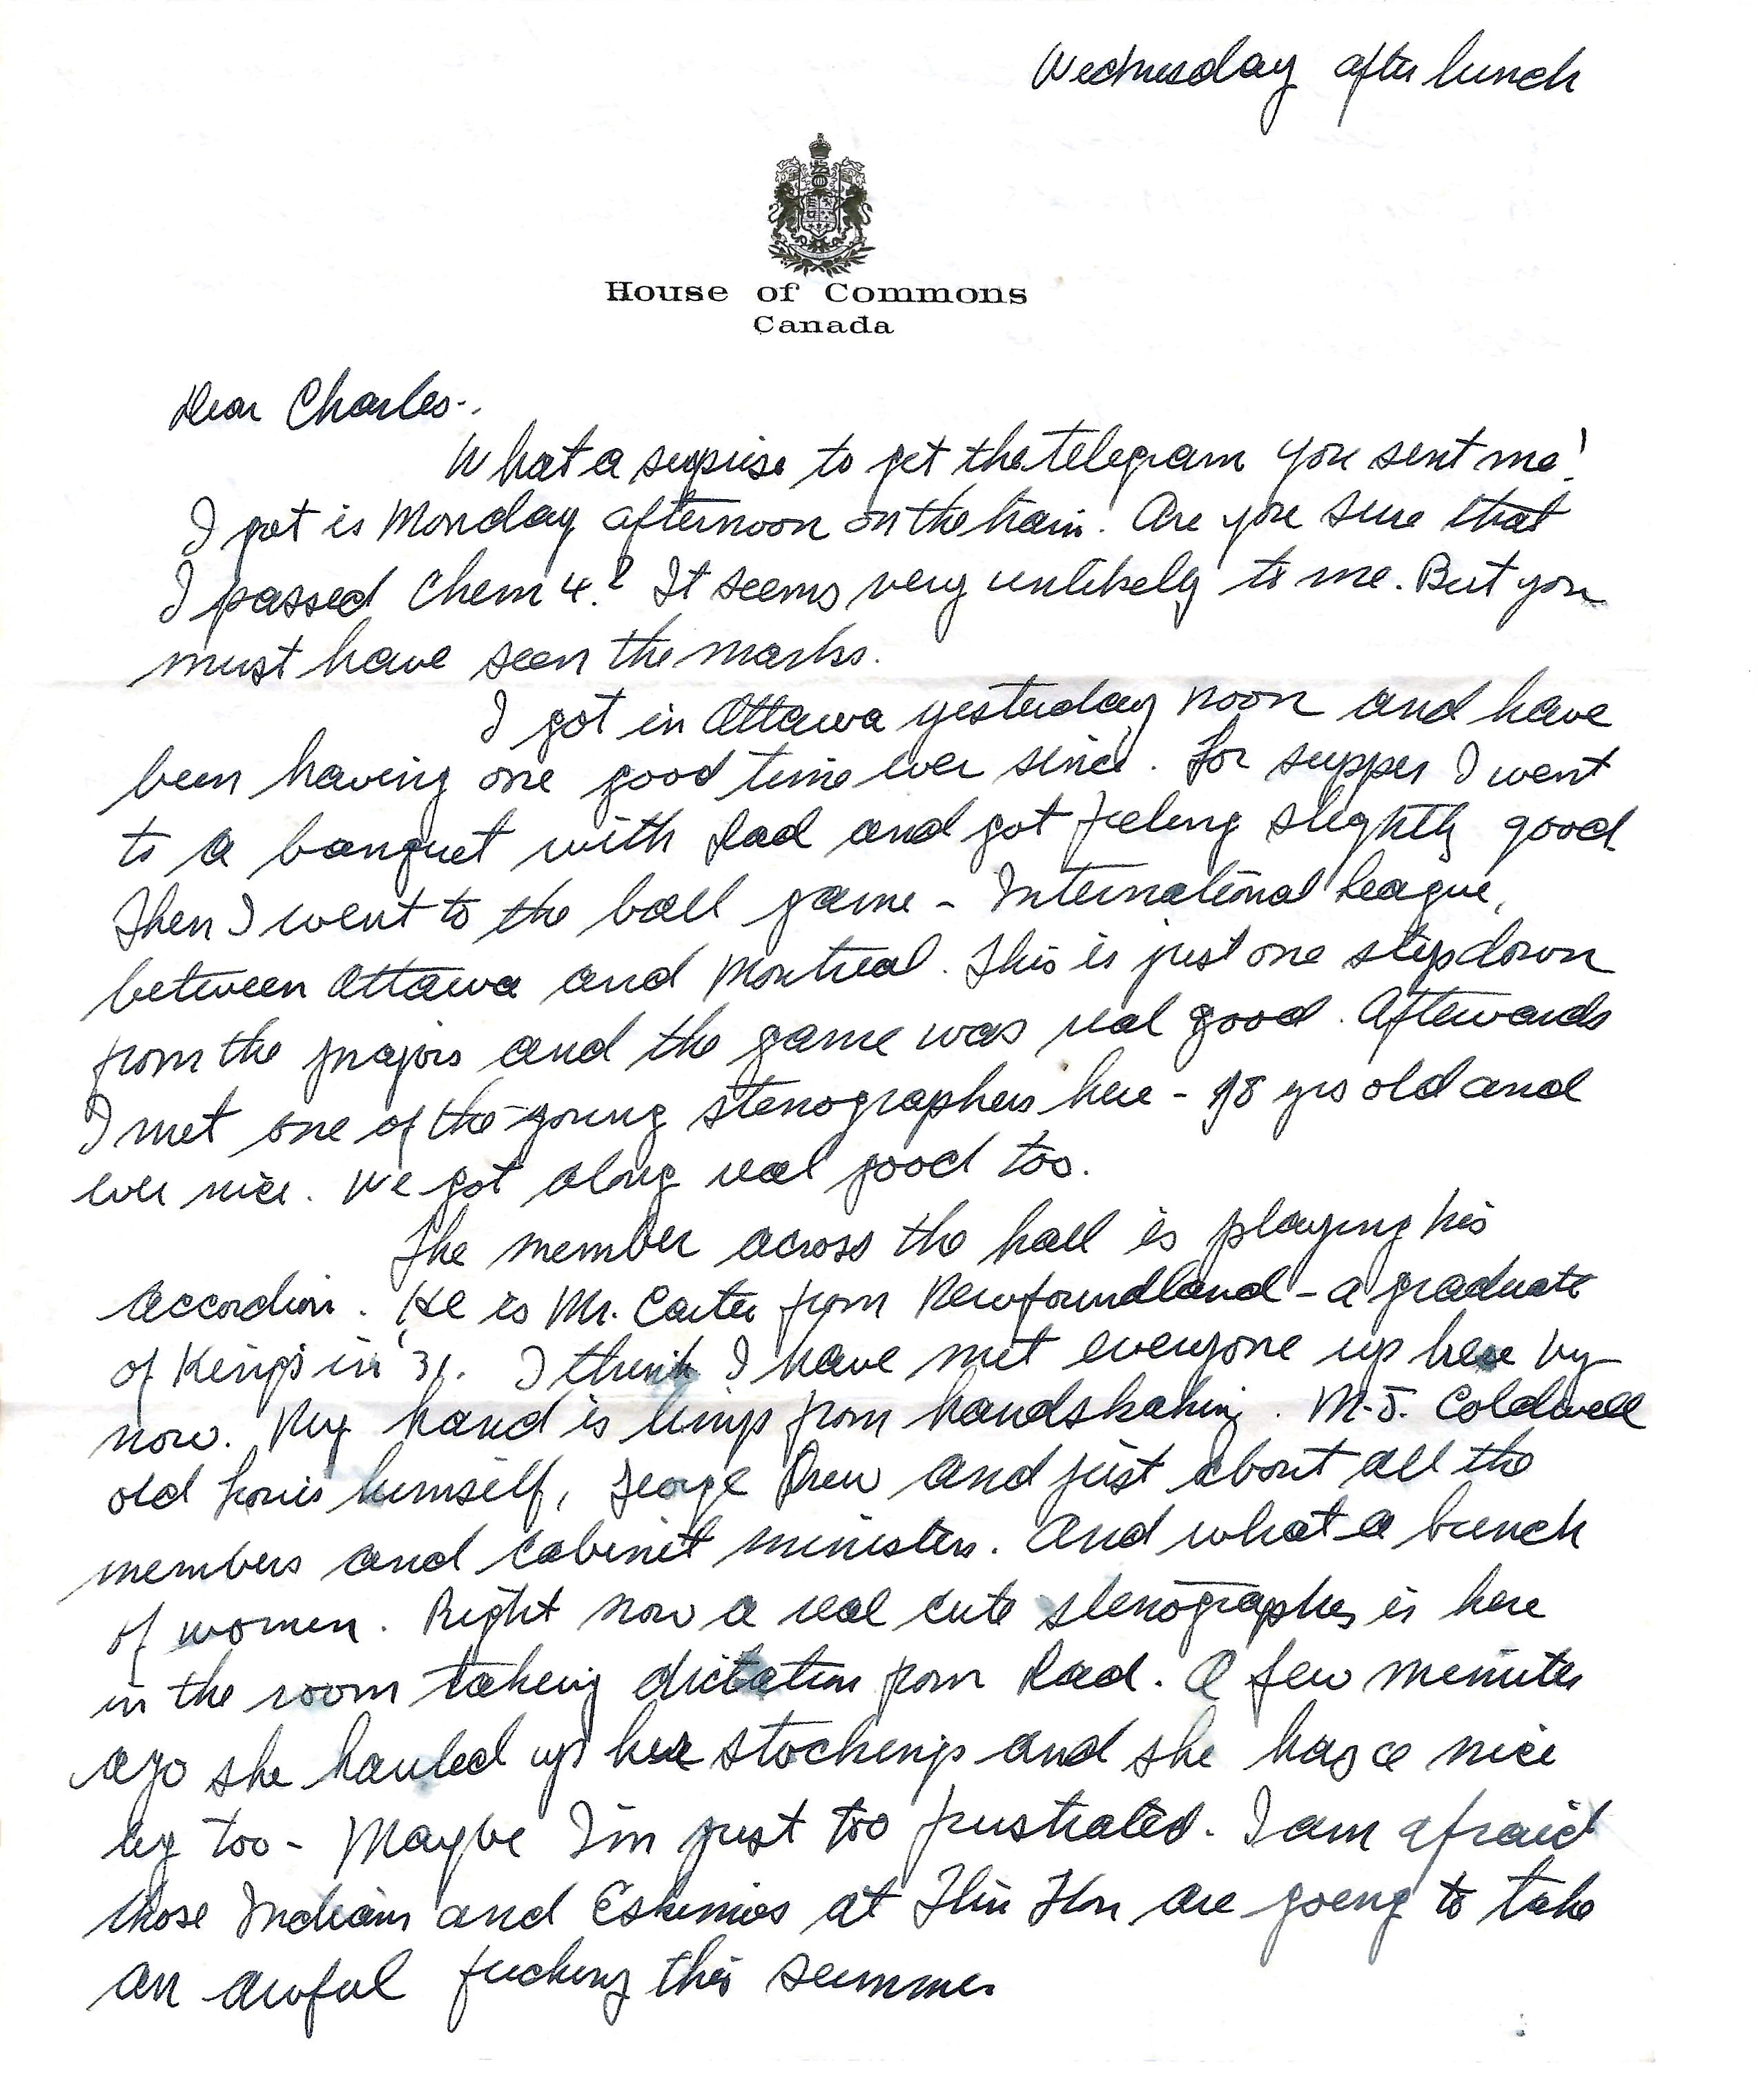 Wednesday after lunch
House of Commons
Canada
Dear Charles -
What a suprise to get the telegram you sent me!
I got is Monday afternoon on the train. Are you sure that
I passed Chem 4? It seems very unlikely to me. But you
must have seen the marks.
I got in Ottawa yesterday noon and have
been having one good time ever since. For supper I went
to a banquet with Dad and got feeling slightly good
Then I went to the ball game - International League,
between Ottawa and Montreal. This is just one step down
from the majors and the game was real good. Afterwards
I met one of the young stenographers here - 18 yrs old and
ever nice. We got along real good too.
The member across the hall is playing his
accordion. He is Mr. Carter from Newfoundland - a graduate
of King's in '31. I think I have met everyone up here by
now. My hand is limp from handshaking. M.J. Coldwell
old himself, George Drew and just about all the
members and cabinet ministers. And what a bunch
of women. Right now a real cute stenographer is here
in the room taking dictation from Dad. A few minutes
ago she hauled up her stockings and she has a nice
leg too - Maybe I'm just too frustrated. I am afraid
those Indians and Eskimos at Flin Flon are going to take
an awful fucking this summer